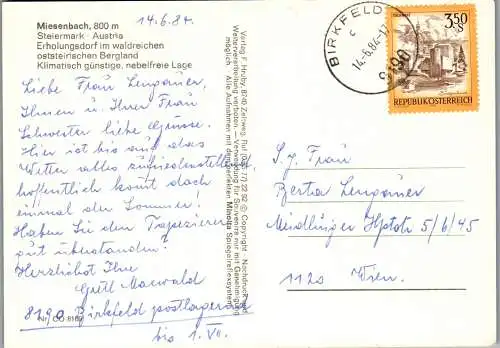 Miesenbach, 800 m
Steiermark - Austria
Erholungsdorf im waldreichen
oststeirischen Bergland
Klimatisch günstige, nebelfreie Lage
14.6.84.
Liebe Frau Lengauer,
Ihnen u. Ihrer Frau
Schwester liebe Grüsse.
Hier ist bis auf das
Wetter alles zufriedenstellend,
hoffentlich kommt doch
einmal der Sommer!
Haben Sie den Tapezierer
gut überstanden?
Herzlichst Ihre
Gretl
8190 Birkfeld postlagernd
bis 1. VII.
Nr. CO 8162
Verlag F. Hruby, 8740 Zeltweg. Ruf
Copyright - Nachdruck und
Weiterverarbeitung verboten - Verwendung für Souvenirs nur mit Genehmigung
möglich. Alle Aufnahmen mit der perfekten Minolta Spiegelreflexsystem
BIRKFELD
14.-6.84-17
c
8190
3.50
S
REPUBLIK ÖSTERREICH
S. g. Frau
Berta Lengauer
Meidlinger Hptstr 5/6/45
1120 Wien.